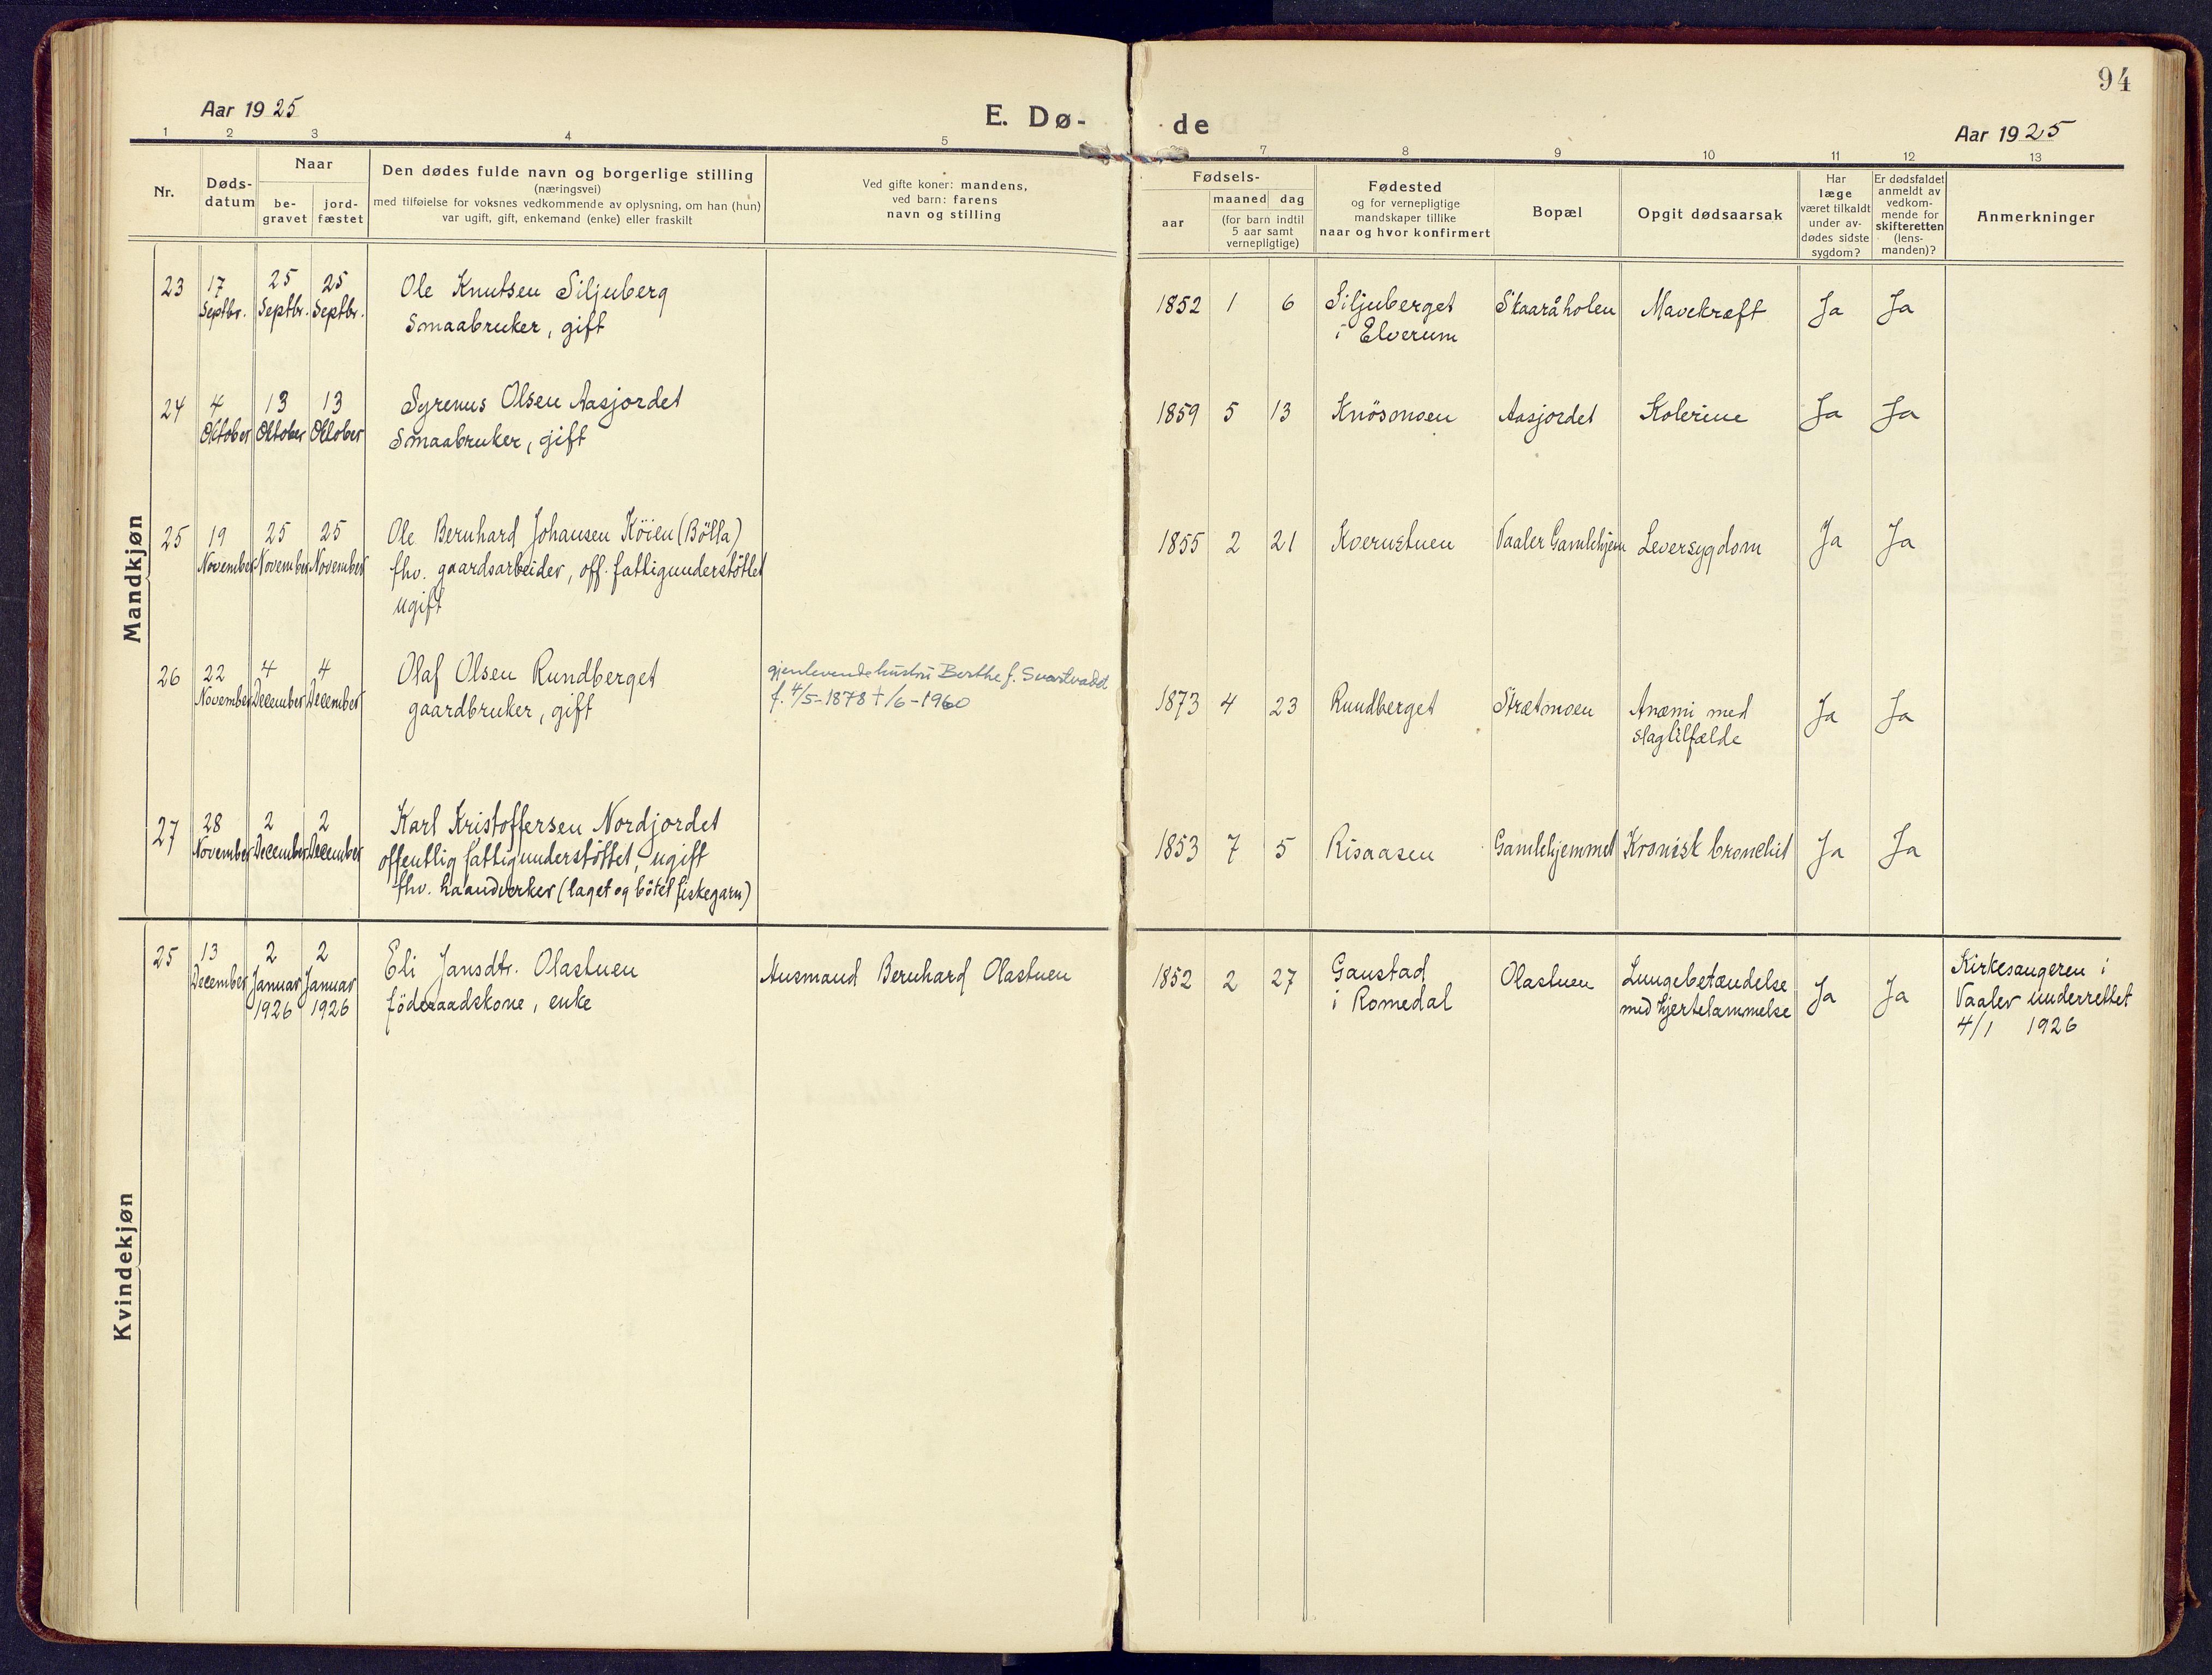 94
Aar 1925
E. Dø-
de
Aar 1925
1 2 3 4 5 7 8 9 10 11 12 13
Nr.
Døds-
datum
Naar
be-
gravet
jord-
fæstet
Den dødes fulde navn og borgerlige stilling
(næringsvei)
med tilføielse for voksnes vedkommende av oplysning, om han (hun)
var ugift, gift, enkemand (enke) eller fraskilt
Ved gifte koner: mandens,
ved barn: farens
navn og stilling
Fødsels-
aar
maaned dag
(for barn indtil
5 aar samt
vernepligtige)
Fødested
og for vernepligtige
mandskaper tillike
naar og hvor konfirmert
Bopæl
Opgit dødsaarsak
Har
læge
været tilkaldt
under av-
dødes sidste
sygdom?
Er dødsfaldet
anmeldt av
vedkom-
mende for
skifteretten
(lens-
manden)?
Anmerkninger
Mandkjøn
23 17 25 25 Ole Knutsen Siljuberg 1852 1 6 Siljuberget Skaaråholen Mavekræft Ja Ja
Septbr. Septbr. Septbr. Smaabruker, gift i Elverum
24 4 13 13 Syrenus Olsen Aasjordet 1859 5 13 Knösmoen Aasjordet Kolerine Ja Ja
Oktober Oktober Oktober Smaabruker, gift
25 19 25 25 Ole Bernhard Johansen Köien (Bölla) 1855 2 21 Kvernstuen Vaaler Gamlehjem Leversygdom Ja Ja
November November November fhv. gaardsarbeider, off. fattigunderstöttet
ugift
26 22 4 4 Olaf Olsen Rundberget gjenlevende hustru Berthe f. Svartvadet 1873 4 23 Rundberget Strætmoen Anæmi med Ja Ja
November December December gaardbruker, gift f. 4/5-1878 † /6-1960 slagtilfælde
27 28 2 2 Karl Kristoffersen Nordjordet 1853 7 5 Risaasen Gamlehjemmet Kronisk bronchit Ja Ja
November December December offentlig fattigunderstöttet, ugift
fhv. haandverker (laget og bötet fiskegarn)
Kvindekjøn
25 13 2 2 Eli Jansdtr. Olastuen Ausmand Bernhard Olastuen 1852 2 27 Gaustad Olastuen Lungebetændelse Ja Ja Kirkesangeren i
December Januar Januar föderaadskone, enke i Romedal med hjertelammelse Vaaler underrettet
1926 1926 4/1 1926